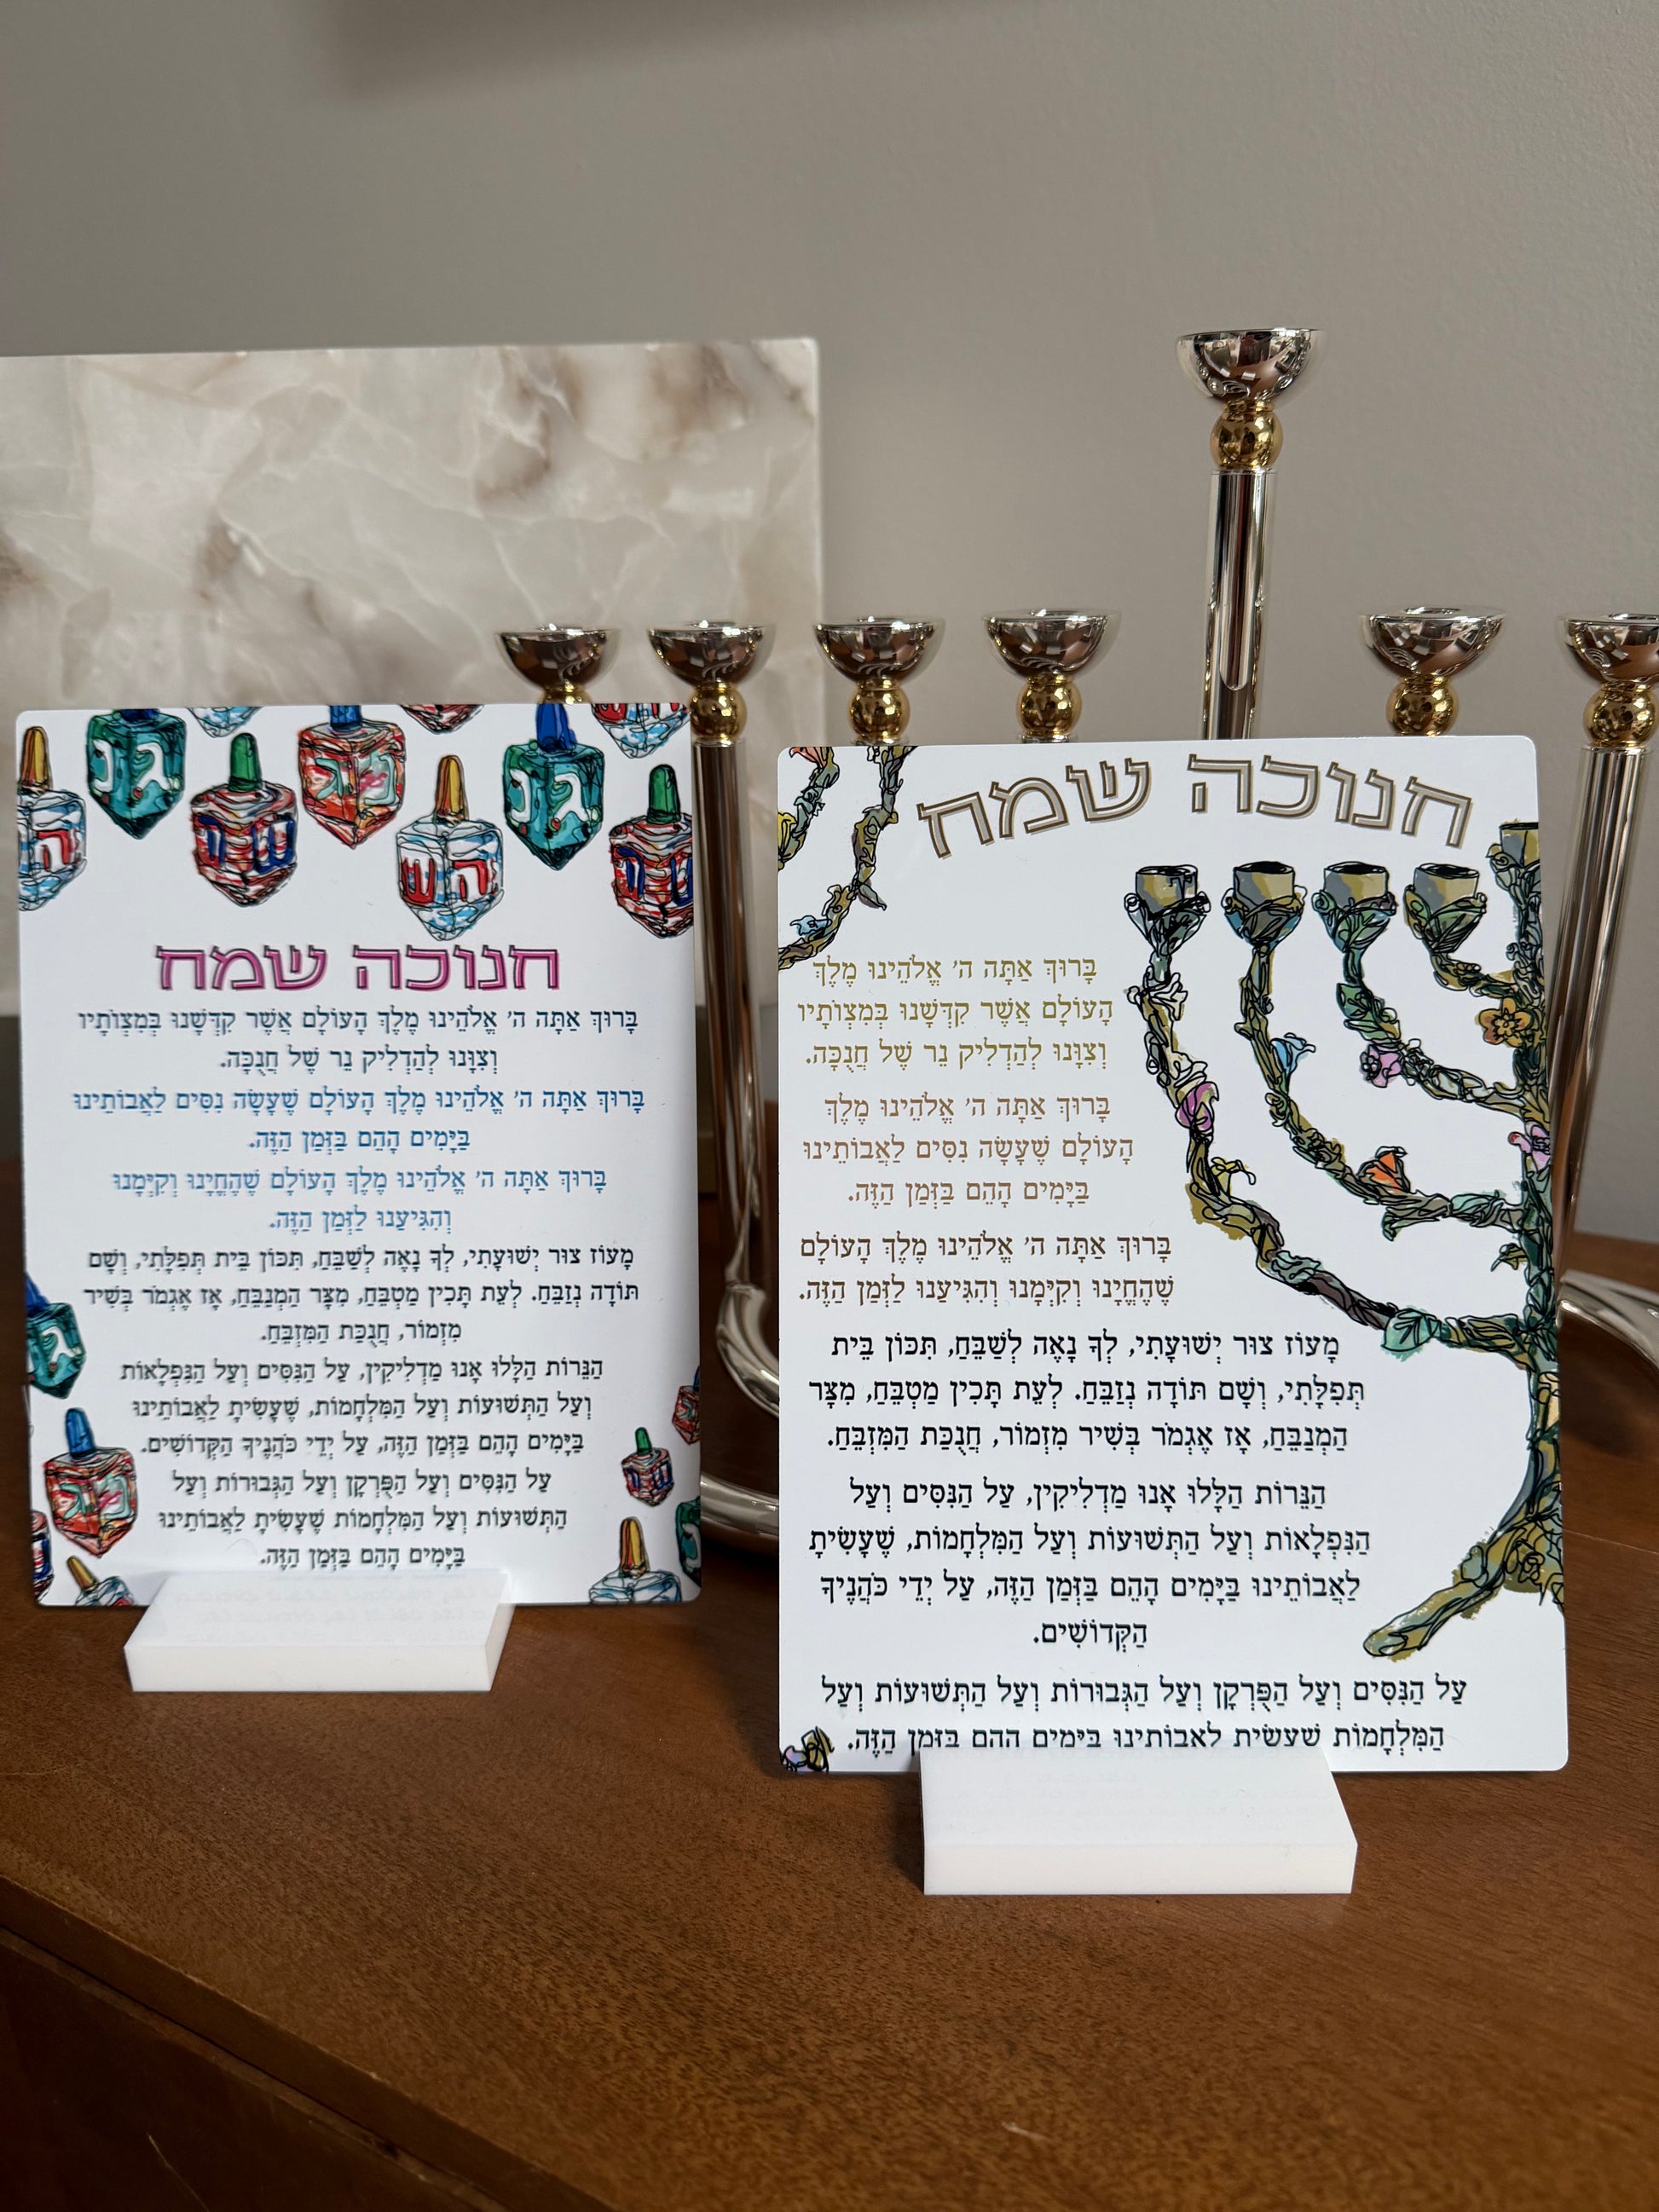 חנוכה שמח
בָּרוּךְ אַתָּה ה' אֱלֹהֵינוּ מֶלֶךְ הָעוֹלָם אֲשֶׁר קִדְּשָׁנוּ בְּמִצְוֹתָיו
וְצִוָּנוּ לְהַדְלִיק נֵר שֶׁל חֲנֻכָּה.
בָּרוּךְ אַתָּה ה' אֱלֹהֵינוּ מֶלֶךְ הָעוֹלָם שֶׁעָשָׂה נִסִּים לַאֲבוֹתֵינוּ
בַּיָּמִים הָהֵם בַּזְּמַן הַזֶּה.
בָּרוּךְ אַתָּה ה' אֱלֹהֵינוּ מֶלֶךְ הָעוֹלָם שֶׁהֶחֱיָנוּ וְקִיְּמָנוּ
וְהִגִּיעַנוּ לַזְּמַן הַזֶּה.
מָעוֹז צוּר יְשׁוּעָתִי, לְךָ נָאֶה לְשַׁבֵּחַ, תִּכּוֹן בֵּית תְּפִלָּתִי, וְשָׁם
תּוֹדָה נְזַבֵּחַ. לְעֵת תָּכִין מַטְבֵּחַ, מִצָּר הַמְנַבֵּחַ, אָז אֶגְמֹר בְּשִׁיר
מִזְמוֹר, חֲנֻכַּת הַמִּזְבֵּחַ.
הַנֵּרוֹת הַלָּלוּ אָנוּ מַדְלִיקִין, עַל הַנִּסִּים וְעַל הַנִּפְלָאוֹת
וְעַל הַתְּשׁוּעוֹת וְעַל הַמִּלְחָמוֹת, שֶׁעָשִׂיתָ לַאֲבוֹתֵינוּ
בַּיָּמִים הָהֵם בַּזְּמַן הַזֶּה, עַל יְדֵי כֹּהֲנֶיךָ הַקְּדוֹשִׁים.
עַל הַנִּסִּים וְעַל הַפֻּרְקָן וְעַל הַגְּבוּרוֹת וְעַל
הַתְּשׁוּעוֹת וְעַל הַמִּלְחָמוֹת שֶׁעָשִׂיתָ לַאֲבוֹתֵינוּ
בַּיָּמִים הָהֵם בַּזְּמַן הַזֶּה.
חנוכה שמח
בָּרוּךְ אַתָּה ה' אֱלֹהֵינוּ מֶלֶךְ
הָעוֹלָם אֲשֶׁר קִדְּשָׁנוּ בְּמִצְוֹתָיו
וְצִוָּנוּ לְהַדְלִיק נֵר שֶׁל חֲנֻכָּה.
בָּרוּךְ אַתָּה ה' אֱלֹהֵינוּ מֶלֶךְ
הָעוֹלָם שֶׁעָשָׂה נִסִּים לַאֲבוֹתֵינוּ
בַּיָּמִים הָהֵם בַּזְּמַן הַזֶּה.
בָּרוּךְ אַתָּה ה' אֱלֹהֵינוּ מֶלֶךְ הָעוֹלָם
שֶׁהֶחֱיָנוּ וְקִיְּמָנוּ וְהִגִּיעַנוּ לַזְּמַן הַזֶּה.
מָעוֹז צוּר יְשׁוּעָתִי, לְךָ נָאֶה לְשַׁבֵּחַ, תִּכּוֹן בֵּית
תְּפִלָּתִי, וְשָׁם תּוֹדָה נְזַבֵּחַ. לְעֵת תָּכִין מַטְבֵּחַ, מִצָּר
הַמְנַבֵּחַ, אָז אֶגְמֹר בְּשִׁיר מִזְמוֹר, חֲנֻכַּת הַמִּזְבֵּחַ.
הַנֵּרוֹת הַלָּלוּ אָנוּ מַדְלִיקִין, עַל הַנִּסִּים וְעַל
הַנִּפְלָאוֹת וְעַל הַתְּשׁוּעוֹת וְעַל הַמִּלְחָמוֹת, שֶׁעָשִׂיתָ
לַאֲבוֹתֵינוּ בַּיָּמִים הָהֵם בַּזְּמַן הַזֶּה, עַל יְדֵי כֹּהֲנֶיךָ
הַקְּדוֹשִׁים.
עַל הַנִּסִּים וְעַל הַפֻּרְקָן וְעַל הַגְּבוּרוֹת וְעַל הַתְּשׁוּעוֹת וְעַל
הַמִּלְחָמוֹת שֶׁעָשִׂיתָ לַאֲבוֹתֵינוּ בַּיָּמִים הָהֵם בַּזְּמַן הַזֶּה.